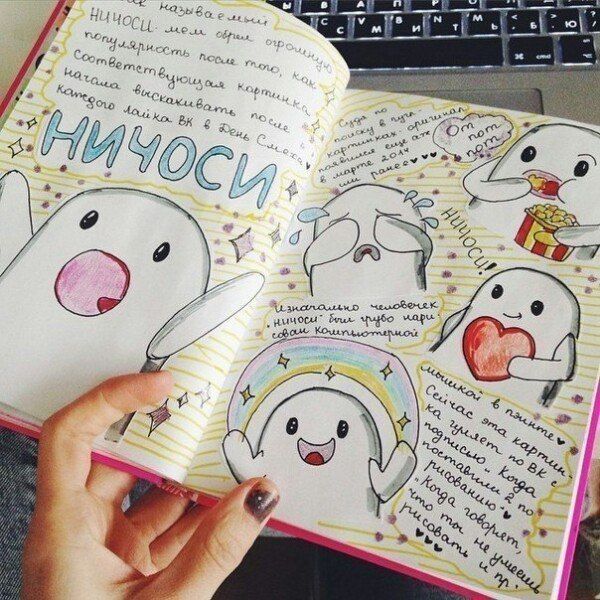 так называемый
НИЧОСИ. мем обрел огромную
популярность после того, как
соответствующая картинка
начала выскакивать после
каждого лайка ВК в День Смеха
НИЧОСИ
Судя по
поиску в гугл
картинках, оригинал
появился еще аж
в марте 2014
или ранее
От
пот
пот
НИЧОСИ!
Изначально человечек
„Ничоси" был грубо нари
сован компьютерной
мышкой в пэинте
Сейчас эта картин
ка гуляет по ВК с
подписью „Когда
поставили 2 по
рисованию"
„Когда говорят,
что ты не умеешь
рисовать и пр.